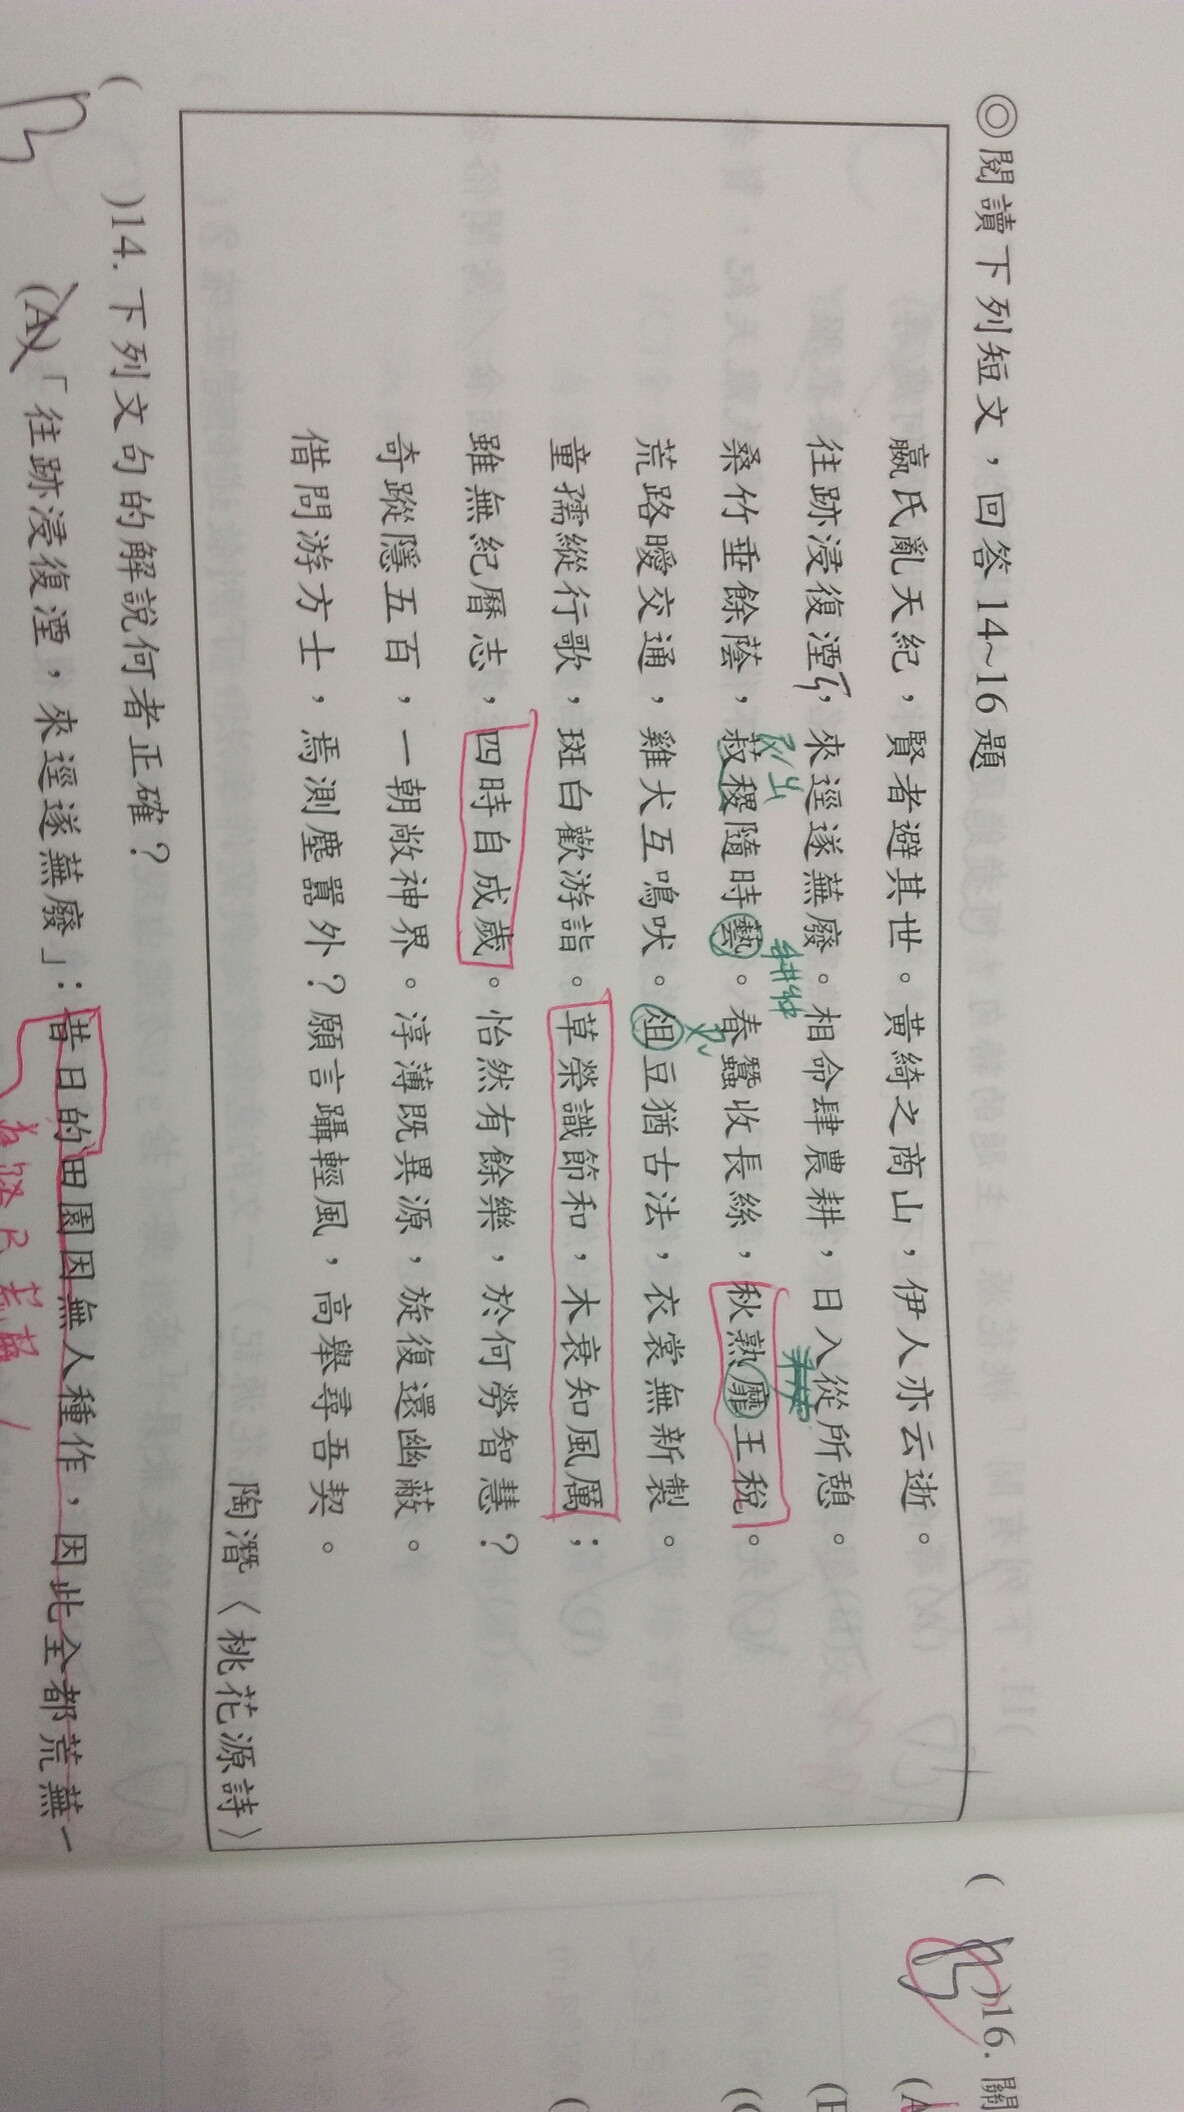 ◎閱讀下列短文，回答14~16題
嬴氏亂天紀，賢者避其世。黃綺之商山，伊人亦云逝。
往跡浸復湮，來逕遂蕪廢。相命肆農耕，日入從所憩。
桑竹垂餘蔭，菽稷隨時藝。春蠶收長絲，秋熟靡王稅。
荒路曖交通，雞犬互鳴吠。俎豆猶古法，衣裳無新製。
童孺縱行歌，斑白歡游詣。草榮識節和，木衰知風厲；
雖無紀曆志，四時自成歲。怡然有餘樂，於何勞智慧？
奇蹤隱五百，一朝敞神界。淳薄既異源，旋復還幽蔽。
借問游方士，焉測塵囂外？願言躡輕風，高舉尋吾契。
陶潛〈桃花源詩〉
( )14. 下列文句的解說何者正確？
(A)「往跡浸復湮，來逕遂蕪廢」：昔日的田園因無人種作，因此全都荒蕪一
耕種
( )16. 關
(A
(B
(C
(